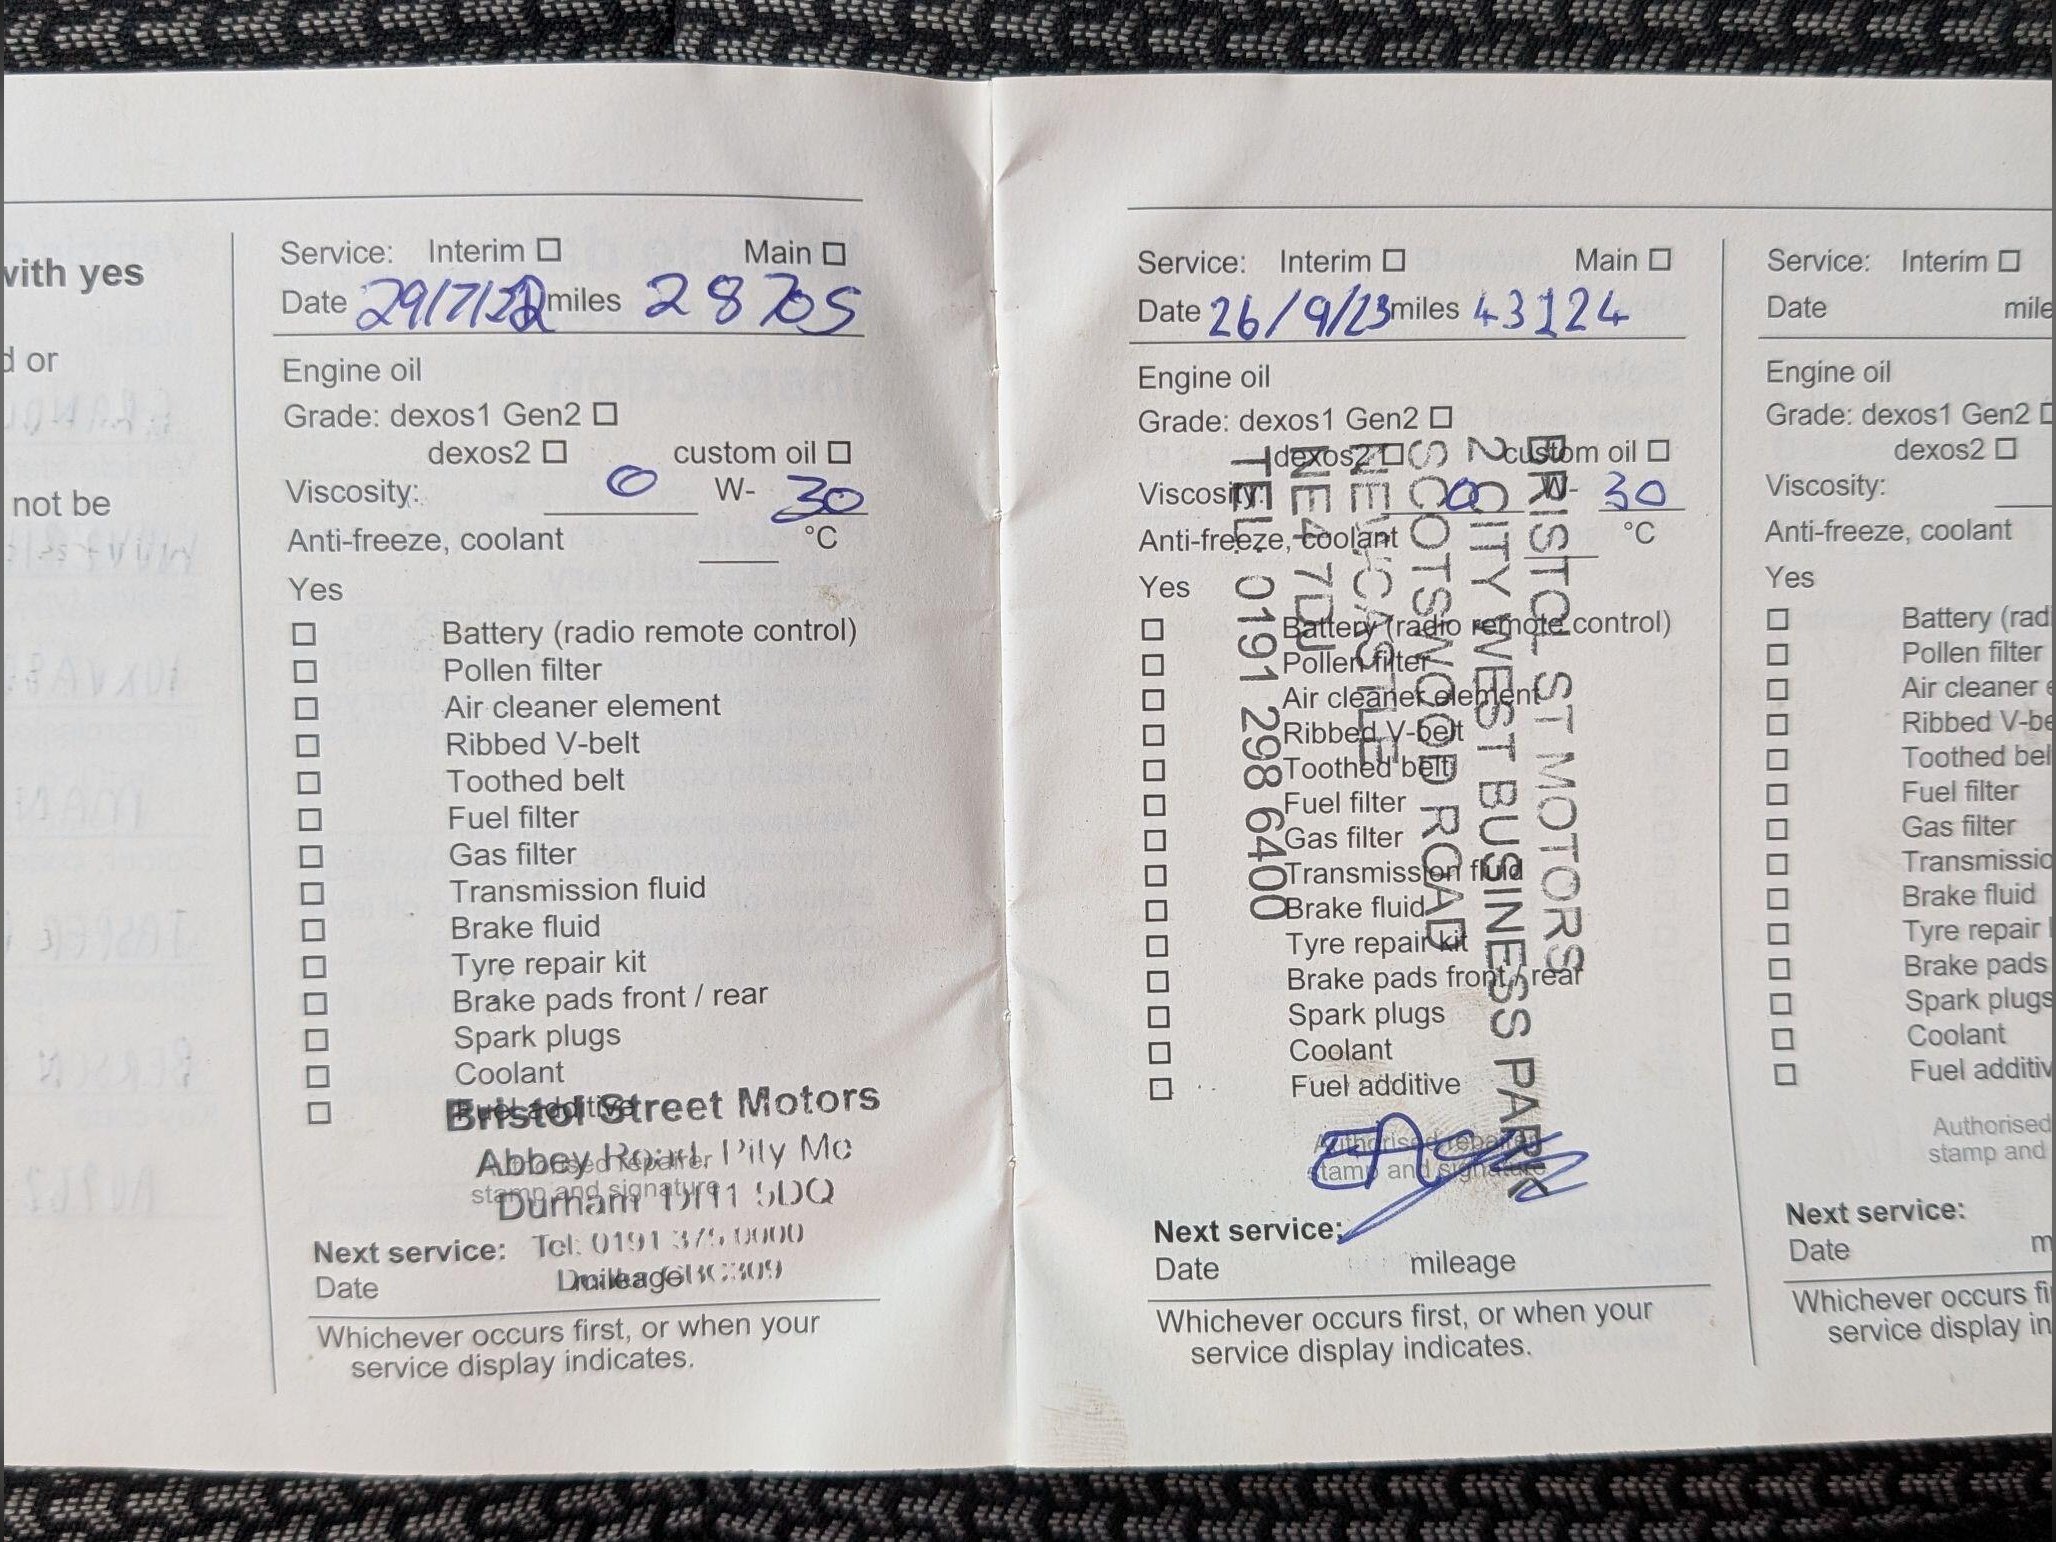 with yes
d or
not be
Service: Interim ☐ Main ☐
Date 29/7/22 miles 28705
Engine oil
Grade: dexos1 Gen2 ☐
dexos2 ☐ custom oil ☐
Viscosity: 0 W- 30
Anti-freeze, coolant °C
Yes
☐ Battery (radio remote control)
☐ Pollen filter
☐ Air cleaner element
☐ Ribbed V-belt
☐ Toothed belt
☐ Fuel filter
☐ Gas filter
☐ Transmission fluid
☐ Brake fluid
☐ Tyre repair kit
☐ Brake pads front / rear
☐ Spark plugs
☐ Coolant
☐ Fuel additive
Bristol Street Motors
Abbey Road, Pity Me
Durham DH1 5DQ
Authorised repairer
stamp and signature
Tel: 0191 375 0000
Next service:
Date mileage
Whichever occurs first, or when your
service display indicates.
Service: Interim ☐ Main ☐
Date 26/9/23 miles 43124
Engine oil
Grade: dexos1 Gen2 ☐
dexos2 ☐ custom oil ☐
Viscosity: 0 W- 30
Anti-freeze, coolant °C
Yes
☐ Battery (radio remote control)
☐ Pollen filter
☐ Air cleaner element
☐ Ribbed V-belt
☐ Toothed belt
☐ Fuel filter
☐ Gas filter
☐ Transmission fluid
☐ Brake fluid
☐ Tyre repair kit
☐ Brake pads front / rear
☐ Spark plugs
☐ Coolant
☐ Fuel additive
BRISTOL ST MOTORS
2 CITY WEST BUSINESS PARK
SCOTSWOOD ROAD
NEWCASTLE
NE4 7DJ
TEL: 0191 298 6400
Authorised repairer
stamp and signature
Next service:
Date mileage
Whichever occurs first, or when your
service display indicates.
Service: Interim ☐
Date mile
Engine oil
Grade: dexos1 Gen2 ☐
dexos2 ☐
Viscosity:
Anti-freeze, coolant
Yes
☐ Battery (rad
☐ Pollen filter
☐ Air cleaner e
☐ Ribbed V-be
☐ Toothed bel
☐ Fuel filter
☐ Gas filter
☐ Transmissio
☐ Brake fluid
☐ Tyre repair
☐ Brake pads
☐ Spark plugs
☐ Coolant
☐ Fuel additiv
Authorised
stamp and
Next service:
Date m
Whichever occurs fi
service display in